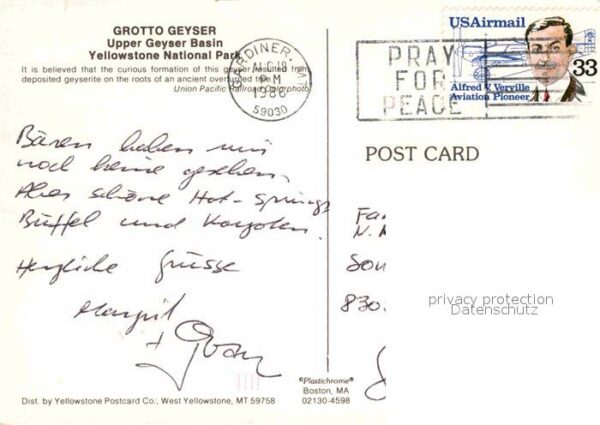 GROTTO GEYSER
Upper Geyser Basin
Yellowstone National Park
It is believed that the curious formation of this geyser resulted from
deposited geyserite on the roots of an ancient overturned tree.
Union Pacific Railroad Colorphoto
GARDINER,
AUG 18
PM
1986
59030
PRAY
FOR
PEACE
USAirmail
33
Alfred V. Verville
Aviation Pioneer
POST CARD
Bären haben wir
noch keine gesehen.
Aber schöne Hot-Springs
Büffel und Kojoten.
Herzliche Grüsse
Margrit
+
Fa
N.
Son
830.
privacy protection
Datenschutz
©Plastichrome®
Boston, MA
02130-4598
Dist. by Yellowstone Postcard Co., West Yellowstone, MT 59758